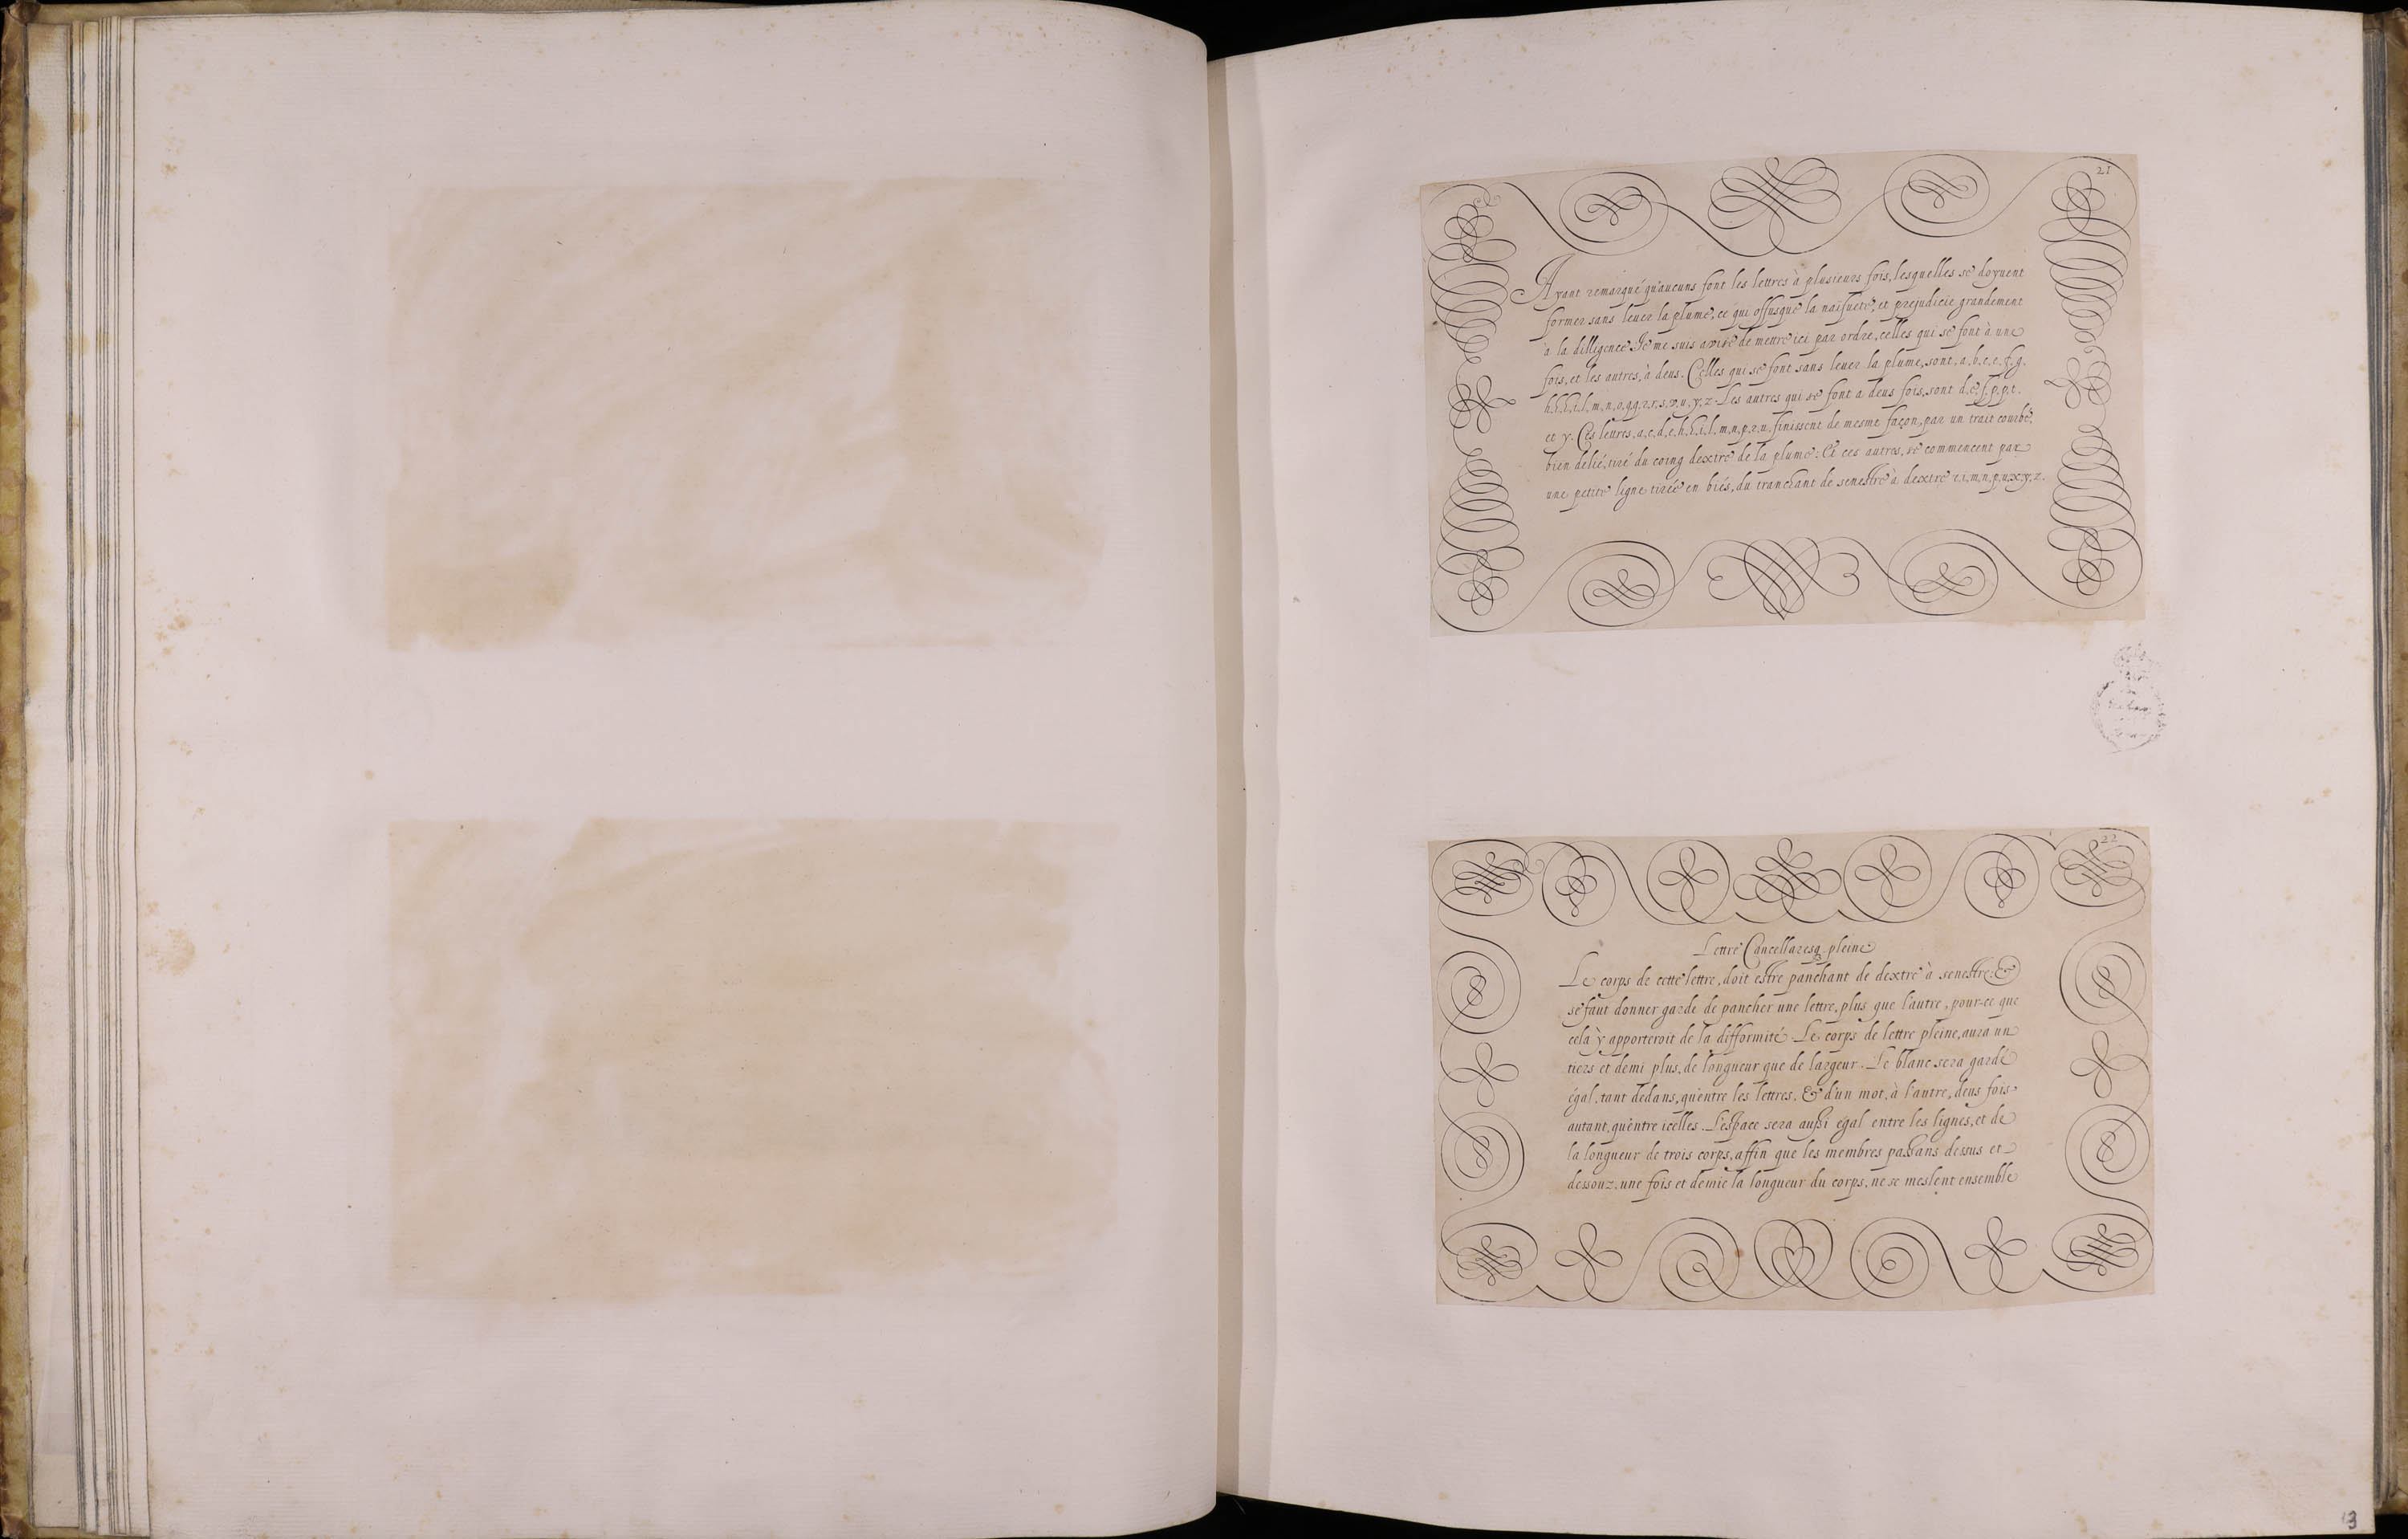 21
Ayant remarqué qu'aucuns font les lettres à plusieurs fois, lesquelles se doyuent
former sans leuer la plume, ce qui offusque la naïfueté, et prejudicie grandement
à la dilligence. Je me suis avisé de mettre ici par ordre, celles qui se font à une
fois, et les autres, à deus. Celles qui se font sans leuer la plume, sont, a, b, c, e, f, g,
h, h, h, i, l, m, n, o, q, q, r, s, s, v, u, y, z. Les autres qui se font a deus fois, sont d, e, f, p, p, t,
et y. Ces lettres, a, c, d, e, h, h, i, l, m, n, p, r, u, finissent de mesme façon, par un trait courbé,
bien delié, tiré du coing dextre de la plume: Et ces autres, se commencent par
une petite ligne tirée en biés, du tranchant de senestre à dextre i, i, m, n, p, u, x, y, z.
22
Lettre Cancellaresq pleine
Le corps de cette lettre, doit estre panchant de dextre à senestre: &
se faut donner garde de pancher une lettre, plus que l'autre, pour-ce que
celà y apporteroit de la difformité. Le corps de lettre pleine, aura un
tiers et demi plus, de longueur que de largeur. Le blanc sera gardé
égal, tant dedans, qu'entre les lettres. & d'un mot, à l'autre, deus fois
autant, qu'entre icelles. L'espace sera aussi égal entre les lignes, et de
la longueur de trois corps, affin que les membres passans dessus et
dessouz, une fois et demie la longueur du corps, ne se meslent ensemble
13